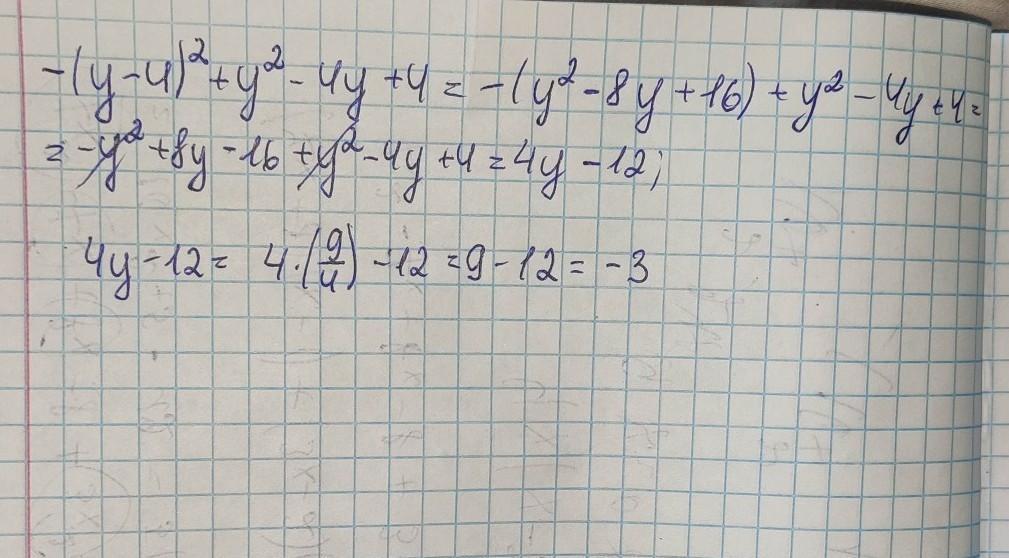 -(y-4)²+y²-4y+4=-(y²-8y+16)+y²-4y+4=
=-y²+8y-16+y²-4y+4=4y-12;
4y-12= 4·(9/4)-12=9-12=-3